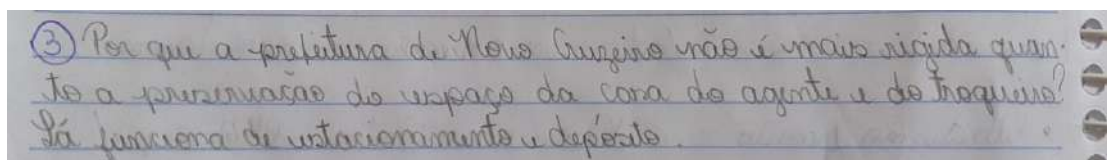 ③ Por que a prefeitura de Novo Cruzeiro não é mais rigida quan-
to a preservação do espaço da casa do agente e do troqueiro?
Lá funciona de estacionamento e depósito.